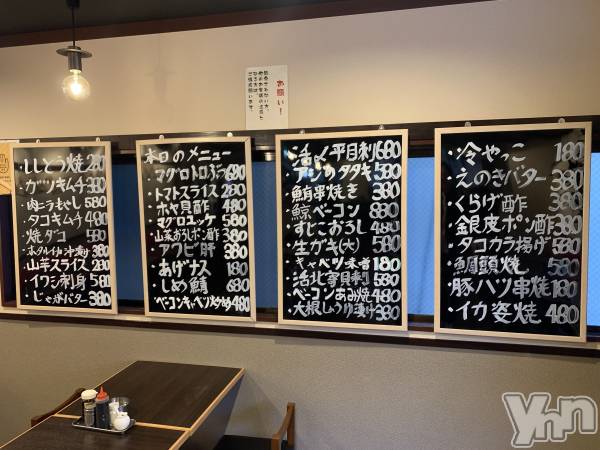 お願い！
・ししとう焼 280
・ガツキムチ 380
・肉ニラもやし 580
・タコキムチ 480
・焼ダコ 580
・ホタルイカ沖漬け 380
・山芋スライス 280
・イワシ刺身 580
・じゃがバター 380
本日のメニュー
・マグロトロぶつ 680
・トマトスライス 280
・ホヤ貝酢 480
・マグロユッケ 580
・山菜おろしポン酢 380
・アワビ肝 380
・あげナス 180
・しめ鯖 680
・ベーコンキャベツ炒め 480
・活〆平目刺 680
・アジのタタキ 580
・鮪串焼き 380
・鯨ベーコン 880
・すじこおろし 480
・生ガキ(大) 580
・キャベツ味噌 180
・活北寄貝刺 580
・ベーコンあみ焼 480
・大根しょうゆ漬け 380
・冷やっこ 180
・えのきバター 380
・くらげ酢 380
・銀皮ポン酢 380
・タコカラ揚げ 580
・鯛頭焼 580
・豚ハツ串焼 180
・イカ姿焼 480
yhn